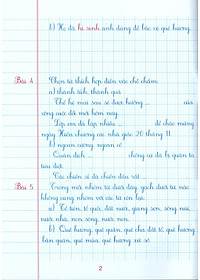 b) Họ đã hi sinh anh dũng để bảo vệ quê hương.
Bài 4 Chọn từ thích hợp điền vào chỗ chấm.
a) thành tích, thành quả
Thế hệ mai sau sẽ được hưởng ... của
công cuộc đổi mới hôm nay.
Lớp em đã lập nhiều ... để chào mừng
ngày Hiến chương các nhà giáo 20 tháng 11.
b) ngoan cường, ngoan cố
Quân địch ... chống cự đã bị quân ta
tiêu diệt.
Các chiến sĩ đã chiến đấu rất ...
Bài 5 Trong mỗi nhóm từ dưới đây, gạch dưới từ nào
không cùng nhóm với các từ còn lại:
a) Tổ tiên, tổ quốc, đất nước, giang sơn, sông núi,
nước nhà, non sông, nước non.
b) Quê hương, quê quán, quê cha đất tổ, quê hương
bản quán, quê mùa, quê hương xứ sở.
2